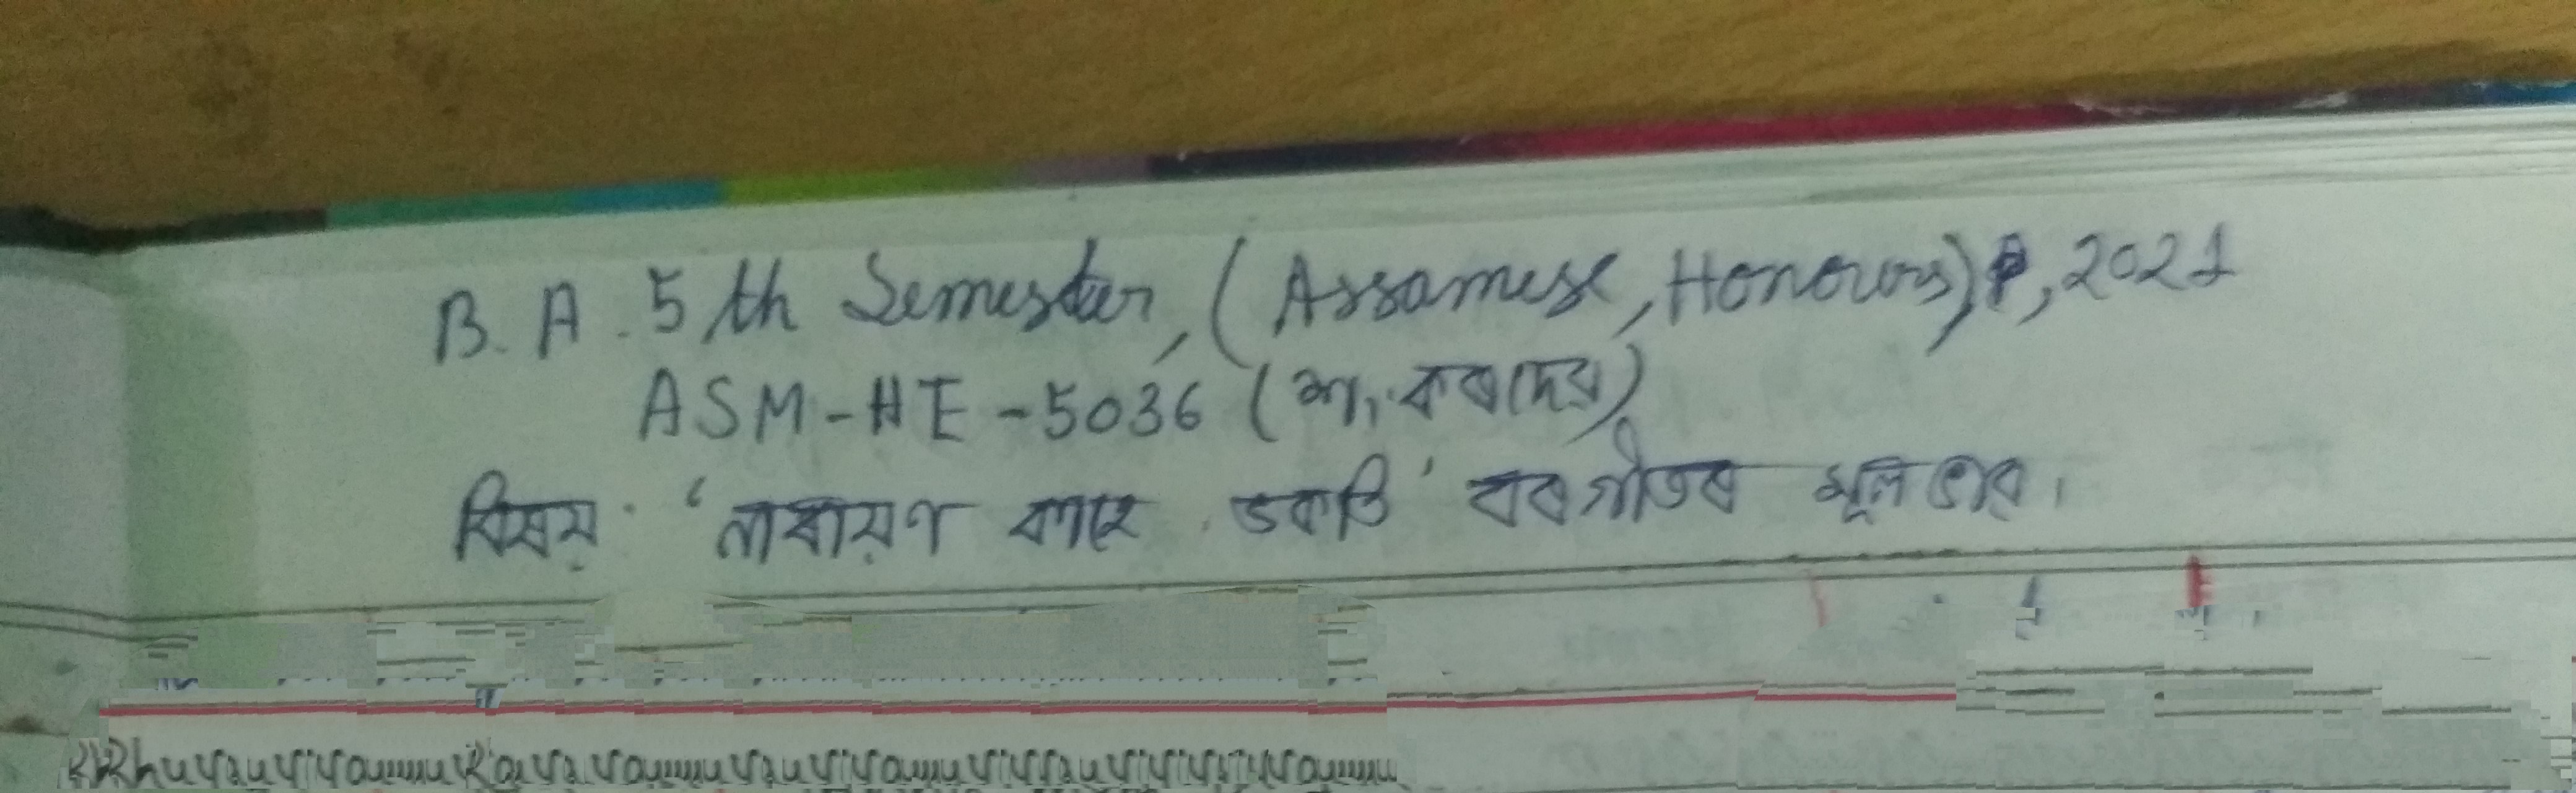 B. A. 5th Semester, (Assamese, Honours), 2021
ASM-HE-5036 (শংকৰদেৱ)
বিষয়. 'নাৰায়ণ কাহে ভকতি' বৰগীতৰ মূলভাৱ।